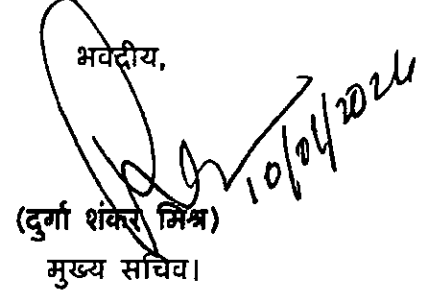 भवदीय,
10/01/2024
(दुर्गा शंकर मिश्र)
मुख्य सचिव।